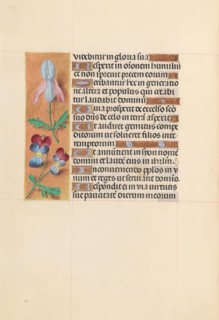 videbitur in gloria sua
Respexit in orationem humiliu
et non sprevit precem eorum
Scribantur hec in generatio
ne altera et populus qui creabi
tur laudabit dominum
Quia prospexit de excelso sco
suo dns de celo in terra aspexit
Ut audiret gemitus compe
ditorum ut solveret filios inte
remptorum
Ut annutient in syon nome
domini et laude eius in ihrlm
In conveniendo pplos in v
num et reges ut serviant domio
Respondit ei in via virtutis
sue paucitate dierum meorum